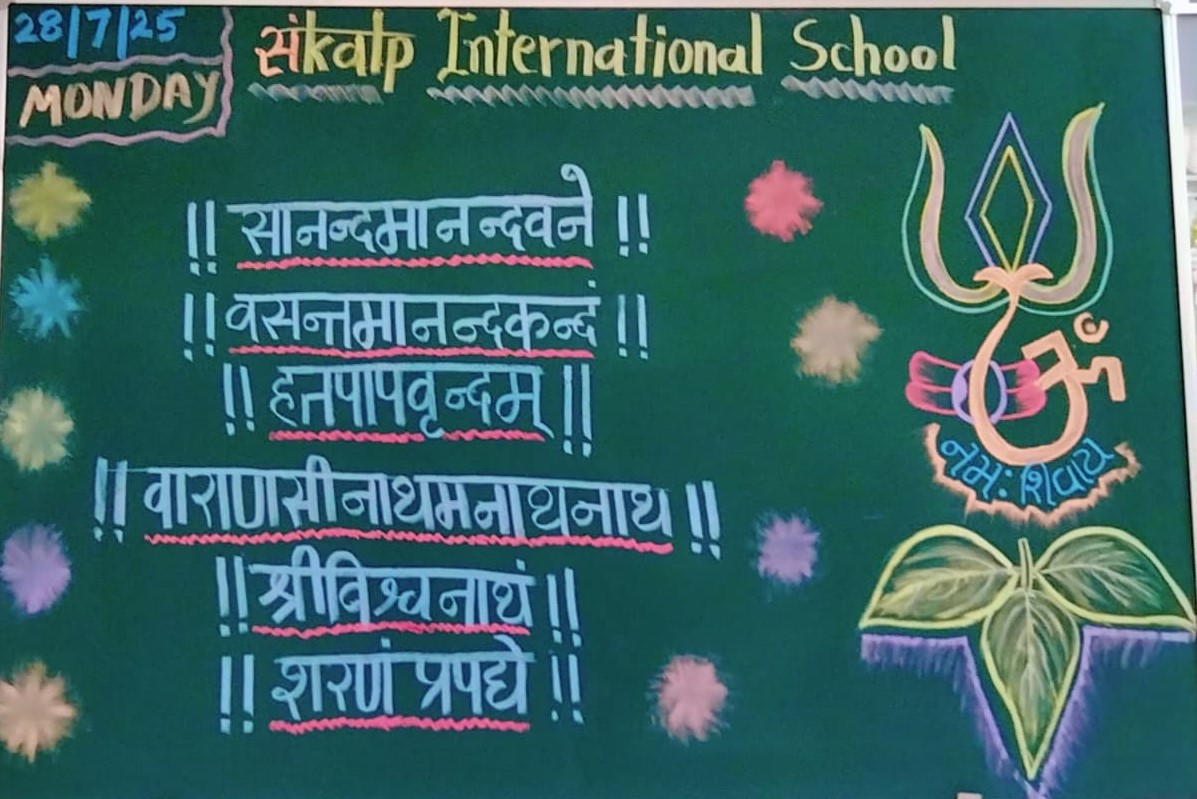 28/7/25
MONDAY
संkalp International School
!! सानन्दमानन्दवने !!
!! वसन्तमानन्दकन्दं !!
!! हतपापवृन्दम् !!
!! वाराणसीनाथमनाथनाथ !!
!! श्रीविश्वनाथं !!
!! शरणं प्रपद्ये !!
ॐ
नमः शिवाय